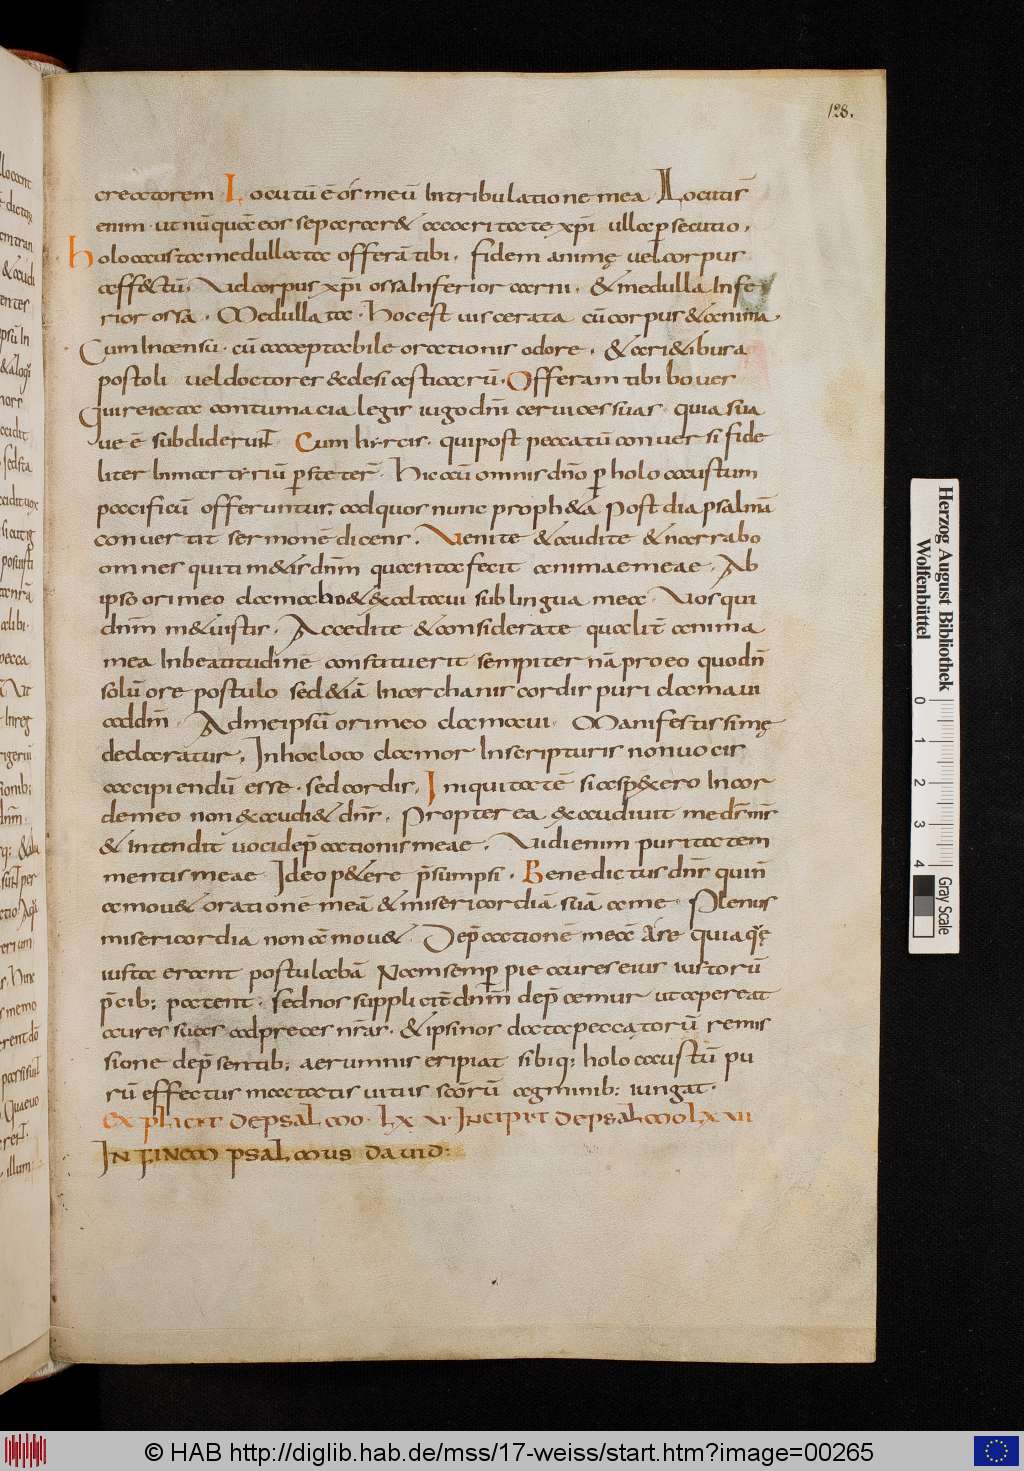 128.
creatorem · Locutū ē ós meū In tribulatione mea · Locutus̄
enim · ut nūquā eos separar& a caritate xp̄i ulla persecutio ·
Holocausta medullata offerā tibi · fidem animę uel corpus
affectū · Vel corpus xp̄i ossa Inferior carni · & medulla Infe
rior ossa · Medullata · Hoc est uiscerata cū corpus & anima ·
Cum Incensu · cū acceptabile orationis odore · & ari&ib; ura
postoli uel doctores ecclesiasticarū · Offeram tibi boues
Qui reiecta contumacia legis iugo dn̄i ceruices suas · quia sua
ue ē subdiderunt Cum hircis · qui post peccatū conuersi fide
liter
pacificū offeruntur; ad quos nunc proph&a Post diapsalmā
conuertit sermonē dicens · Venite & audite & narrabo
omnes qui tim&is dn̄m quanta fecit animae meae · Ab
ipso ori meo clamaho& & exaltaui sub lingua mea · Vos qui
dn̄m m&uistis · Accedite & considerate qualit̄ anima
mea In beatitudinē constituerit sempiternā pro eo quod n̄
solū ore postulo sed & iā In archanis cordis puri clamaui
ad dn̄m · Ad me ipsū ori meo clamaui · Manifestissimę
declaratur · In hoc loco clamor In scripturis non uocis
accipiendū esse · sed cordis · Iniquitatē si aspexero In cor
de meo non exaudi& dn̄s · Propterea exaudiuit me ds̄
& intendit uoci dep̄cationis meae · Vidi enim puritatem
mentis meae Ideo p&ere p̄sumpsi · Benedictus dn̄s qui n̄
amou& oratione meā & misericordiā suā a me · Plenus
misericordia non amou& · Dep̄cationē meā A re quia quę
iusta erant postulabā Nam semper pie aures eius iustorū
p̄cib; patent · sed nos supplicit̄ dn̄m dep̄camur ut apereat
aures suas ad preces nr̄as · & ipsi nos data peccatorū remis
sione dep̄sentib; aerumnis eripiat sibiq; holocaustū pu
rū effectus mactatis uitiis sc̄orū agminib; iungat ·
Explicit de psalmo · LXV · Incipit de psalmo LXVI
In finem psalmus dauid:
Herzog August Bibliothek
Wolfenbüttel
0 1 2 3 4
Gray Scale
© HAB http://diglib.hab.de/mss/17-weiss/start.htm?image=00265